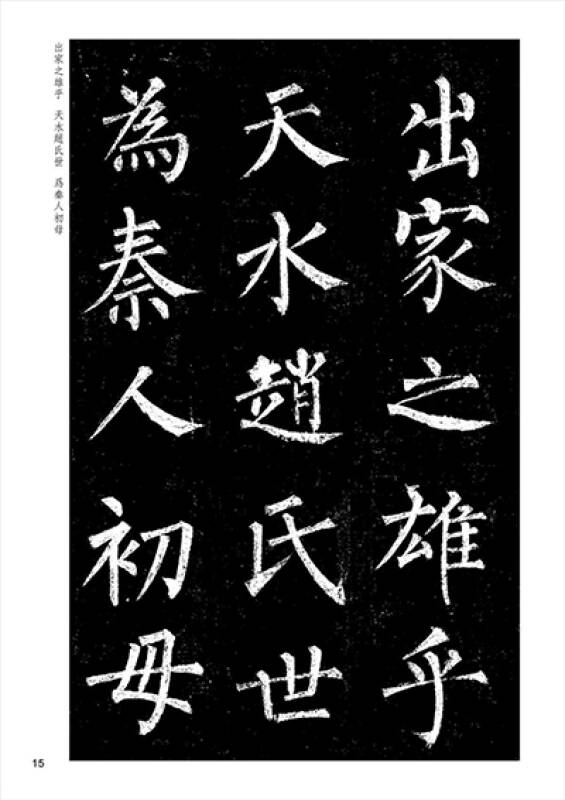 出家之雄乎
天水趙氏世
為秦人初母
出家之雄乎　天水趙氏世　為秦人初母
15